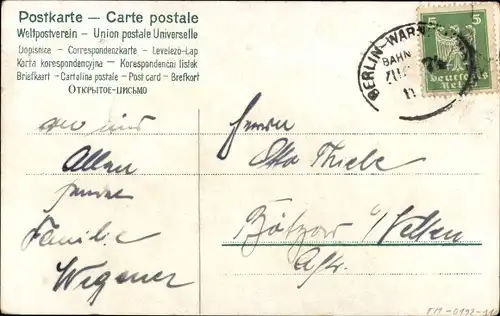 Postkarte — Carte postale
Weltpostverein – Union postale Universelle
Dopisnice – Correspondenzkarte – Levelező-Lap
Karta korespondencyjna – Korespondenčni listek
Briefkaart – Cartolina postale – Post card – Brefkort
Открытое-письмо
BERLIN-WAR
BAHN
ZUG
11
5 5
Deutsches
Reich
von uns
Allen
Familie
Wegener
Herrn
Otto Thiele
Bötzow b/Velten
FM-0192-11